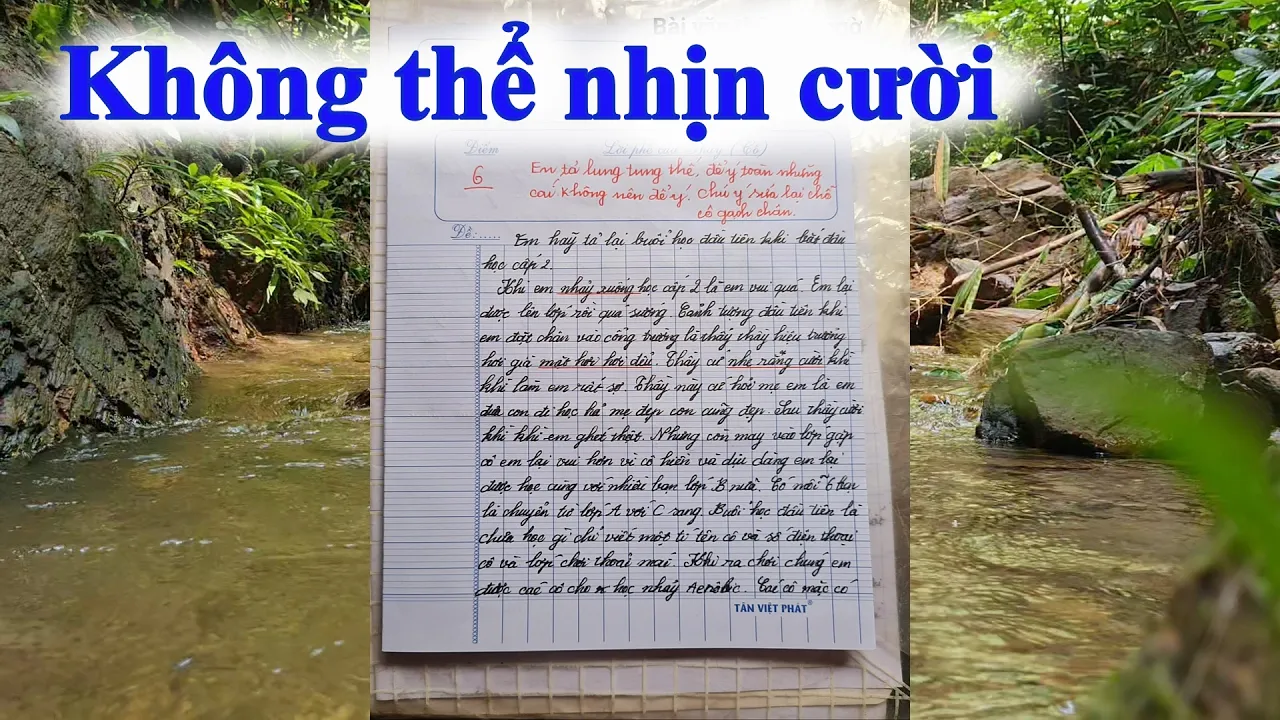 Không thể nhịn cười
Điểm
Lời phê của
6
Em tả lung tung thế, để ý toàn những
cái không nên để ý. Chú ý sửa lại chỗ
cô gạch chân.
Đề:.....
Em hãy tả lại buổi học đầu tiên khi bắt đầu
học cấp 2.
Khi em nhảy xuống học cấp 2 là em vui quá. Em lại
được lên lớp rồi quá sướng. Cảnh tượng đầu tiên khi
em đặt chân vào cổng trường là thấy thầy hiệu trưởng
hơi già mặt hơi hơi dài. Thầy cứ nhe răng cười khì
khì làm em rất sợ. Thầy này cứ hỏi mẹ em là em
đưa con đi học hả mẹ đẹp con cũng đẹp. Sau thầy cười
khì khì em ghét thật. Nhưng còn may vào lớp gặp
cô em lại vui hơn vì cô hiền và dịu dàng em lại
được học cùng với nhiều bạn lớp B nữa. Có mỗi 6 bạn
là chuyển từ lớp A với C sang. Buổi học đầu tiên là
chưa học gì chỉ viết một tí tên cô và số điện thoại
cô và lớp chơi thoải mái. Khi ra chơi chúng em
được các cô cho học nhảy Aerobic. Cái cô mặc có
TÂN VIỆT PHÁT®